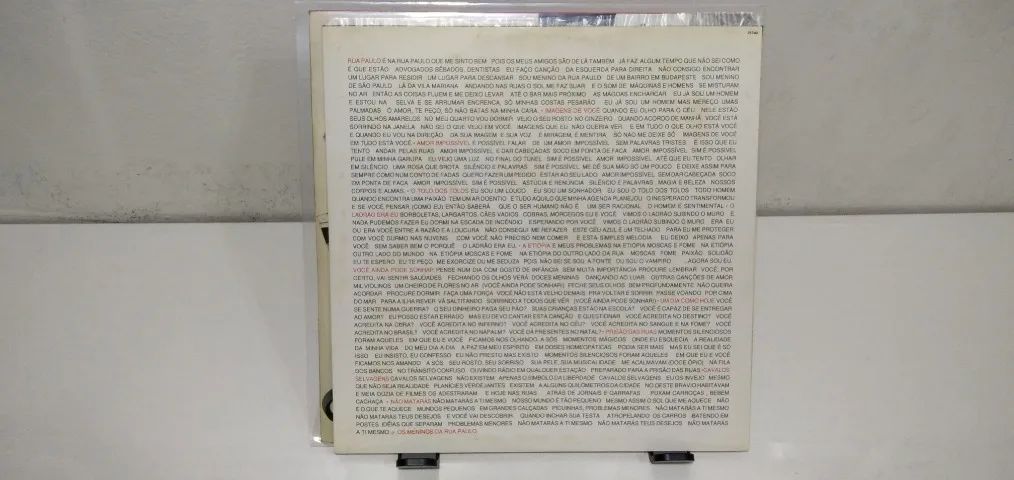 RUA PAULO E NA RUA PAULO QUE ME SINTO BEM POIS OS MEUS AMIGOS SÃO DE LÁ TAMBÉM JÁ FAZ ALGUM TEMPO QUE NÃO SEI COMO
É QUE ESTÃO ADVOGADOS BÊBADOS, DENTISTAS EU FAÇO CANÇÃO DA ESQUERDA PARA DIREITA NÃO CONSIGO ENCONTRAR
UM LUGAR PARA RESIDIR UM LUGAR PARA DESCANSAR SOU MENINO DA RUA PAULO DE UM BAIRRO EM BUDAPESTE SOU MENINO
DE SÃO PAULO LÁ DA VILA MARIANA ANDANDO NAS RUAS O SOL ME FAZ SUAR E O SOM DE MÁQUINAS E HOMENS SE MISTURAM
NO AR ENTÃO AS COISAS FLUEM E ME DEIXO LEVAR ATÉ O BAR MAIS PRÓXIMO AS MÁGOAS ENCHARCAR EU JÁ SOU UM HOMEM
E ESTOU NA SELVA E SE ARRUMAR ENCRENCA, SÓ MINHAS COSTAS PESARÃO EU JÁ SOU UM HOMEM MAS MEREÇO UMAS
PALMADAS Ó AMOR, TE PEÇO, SÓ NÃO BATAS NA MINHA CARA. • IMAGENS DE VOCÊ QUANDO EU OLHO PARA O CÉU NELE ESTÃO
SEUS OLHOS AMARELOS NO MEU QUARTO VOU DORMIR VEJO O SEU ROSTO NO CINZEIRO QUANDO ACORDO DE MANHÃ VOCÊ ESTÁ
SORRINDO NA JANELA NÃO SEI O QUE VEJO EM VOCÊ IMAGENS QUE EU NÃO QUERIA VER E EM TUDO O QUE OLHO ESTÁ VOCÊ
E QUANDO EU VOU NA DIREÇÃO DA SUA IMAGEM E SUA VOZ É MIRAGEM, É MENTIRA SÓ NÃO ME DEIXE SÓ IMAGENS DE VOCÊ
EM TUDO ESTÁ VOCÊ • AMOR IMPOSSÍVEL É POSSÍVEL FALAR DE UM AMOR IMPOSSÍVEL SEM PALAVRAS TRISTES É ISSO QUE EU
TENTO ANDAR PELAS RUAS AMOR IMPOSSÍVEL E DAR CABEÇADAS SOCO EM PONTA DE FACA AMOR IMPOSSÍVEL SIM É POSSÍVEL
PULE EM MINHA GARUPA EU VEJO UMA LUZ NO FINAL DO TÚNEL SIM É POSSÍVEL AMOR IMPOSSÍVEL ATÉ QUE EU TENTO OLHAR
EM SILÊNCIO UMA ROSA QUE BROTA SILÊNCIO E PALAVRAS SIM É POSSÍVEL ME DÊ SUA MÃO SÓ UM POUCO E DEIXE ASSIM PARA
SEMPRE COMO NUM CONTO DE FADAS QUERO FAZER UM PEDIDO ESTAR AO SEU LADO AMOR IMPOSSÍVEL SEM DAR CABEÇADA SOCO
EM PONTA DE FACA AMOR IMPOSSÍVEL SIM É POSSÍVEL ASTÚCIA E RENÚNCIA SILÊNCIO E PALAVRAS MAGIA E BELEZA NOSSOS
CORPOS E ALMAS • O TOLO DOS TOLOS EU SOU UM LOUCO EU SOU UM SONHADOR EU SOU O TOLO DOS TOLOS TODO HOMEM
QUANDO ENCONTRA UMA PAIXÃO TEM UM AR DOENTIO E TUDO AQUILO QUE MINHA AGENDA PLANEJOU O INESPERADO TRANSFORMOU
E SE VOCÊ PENSAR (COMO EU) ENTÃO SABERÁ QUE O SER HUMANO NÃO É UM SER RACIONAL O HOMEM É SENTIMENTAL • O
LADRÃO ERA EU BORBOLETAS, LARGARTOS, CÃES VADIOS COBRAS, MORCEGOS EU E VOCÊ VIMOS O LADRÃO SUBINDO O MURO E
NADA PUDEMOS FAZER EU DORMI NA ESCADA DE INCÊNDIO ESPERANDO POR VOCÊ VIMOS O LADRÃO SUBINDO O MURO ERA EU
OU ERA VOCÊ ENTRE A RAZÃO E A LOUCURA NÃO CONSEGUI ME REFAZER ESTE CÉU AZUL É UM TELHADO PARA EU ME PROTEGER
COM VOCÊ DURMO NAS NUVENS COM VOCÊ NÃO PRECISO NEM COMER E ESTA SIMPLES MELODIA EU DEIXO APENAS PARA
VOCÊ SEM SABER BEM O PORQUÊ O LADRÃO ERA EU. • A ETIÓPIA E MEUS PROBLEMAS NA ETIÓPIA MOSCAS E FOME NA ETIÓPIA
OUTRO LADO DO MUNDO NA ETIÓPIA MOSCAS E FOME NA ETIÓPIA DO OUTRO LADO DA RUA MOSCAS FOME PAIXÃO SOLIDÃO
EU TE ESPERO EU TE PEÇO ME EXORCIZE OU ME SEDUZA POIS NÃO SEI SE SOU A FONTE OU SOU O VAMPIRO ...AGORA SOU EU.
VOCÊ AINDA PODE SONHAR PENSE NUM DIA COM GOSTO DE INFÂNCIA SEM MUITA IMPORTÂNCIA PROCURE LEMBRAR VOCÊ, POR
CERTO, VAI SENTIR SAUDADES FECHANDO OS OLHOS VERÁ DOCES MENINAS DANÇANDO AO LUAR OUTRAS CANÇÕES DE AMOR
MIL VIOLINOS UM CHEIRO DE FLORES NO AR (VOCÊ AINDA PODE SONHAR) FECHE SEUS OLHOS BEM PROFUNDAMENTE NÃO QUEIRA
ACORDAR PROCURE DORMIR FAÇA UMA FORÇA VOCÊ NÃO ESTÁ VELHO DEMAIS PRA VOLTAR E SORRIR PASSE VOANDO POR CIMA
DO MAR PARA A ILHA REVER VÁ SALTITANDO SORRINDO A TODOS QUE VÊR (VOCÊ AINDA PODE SONHAR) • UM DIA COMO HOJE VOCÊ
SE SENTE NUMA GUERRA? O SEU DINHEIRO PAGA SEU PÃO? SUAS CRIANÇAS ESTÃO NA ESCOLA? VOCÊ É CAPAZ DE SE ENTREGAR
AO AMOR? EU POSSO ESTAR ERRADO MAS EU DEVO CANTAR ESTA CANÇÃO E QUESTIONAR VOCÊ ACREDITA NO DESTINO? VOCÊ
ACREDITA NA OBRA? VOCÊ ACREDITA NO INFERNO? VOCÊ ACREDITA NO CÉU? VOCÊ ACREDITA NO SANGUE E NA FOME? VOCÊ
ACREDITA NO BRASIL? VOCÊ ACREDITA NO NAPALM? VOCÊ DÁ PRESENTES NO NATAL? • PRISÃO DAS RUAS MOMENTOS SILENCIOSOS
FORAM AQUELES EM QUE EU E VOCÊ FICAMOS NOS OLHANDO, A SÓS MOMENTOS MÁGICOS ONDE EU ESQUECIA A REALIDADE
DA MINHA VIDA DO MEU DIA-A-DIA A PAZ EM MEU ESPÍRITO EM DOSES HOMEOPÁTICAS PODIA SER MAIS MAS EU SEI QUE É SÓ
ISSO EU INSISTO, EU CONFESSO EU NÃO PRESTO MAS EXISTO MOMENTOS SILENCIOSOS FORAM AQUELES EM QUE EU E VOCÊ
FICAMOS NOS AMANDO A SÓS SEU ROSTO, SEU SORRISO SUA PELE, SUA MUSICALIDADE ME ACALMAVAM (DOCE ÓPIO) NA FILA
DOS BANCOS NO TRÂNSITO CONFUSO OUVINDO RÁDIO EM QUALQUER ESTAÇÃO PREPARADO PARA A PRISÃO DAS RUAS • CAVALOS
SELVAGENS CAVALOS SELVAGENS NÃO EXISTEM APENAS O SÍMBOLO DA LIBERDADE CAVALOS SELVAGENS EU OS INVEJO MESMO
QUE NÃO SEJA REALIDADE PLANÍCIES VERDEJANTES EXISTEM A ALGUNS QUILÔMETROS DA CIDADE NO OESTE BRAVIO HABITAVAM
E MEIA DÚZIA DE FILMES OS ADESTRARAM E HOJE NAS RUAS ATRÁS DE JORNAIS E GARRAFAS PUXAM CARROÇAS, BEBEM
CACHAÇA • NÃO MATARÁS NÃO MATARÁS A TI MESMO NOSSO MUNDO É TÃO PEQUENO MESMO ASSIM O SOL QUE ME AQUECE NÃO
É O QUE TE AQUECE MUNDOS PEQUENOS EM GRANDES CALÇADAS PICUINHAS, PROBLEMAS MENORES NÃO MATARÁS A TI MESMO
NÃO MATARÁS TEUS DESEJOS E VOCÊ VAI DESCOBRIR QUANDO INCHAR SUA TESTA ATROPELANDO OS CARROS BATENDO EM
POSTES, IDÉIAS QUE SEPARAM PROBLEMAS MENORES NÃO MATARÁS A TI MESMO NÃO MATARÁS TEUS DESEJOS NÃO MATARÁS
A TI MESMO • OS MENINOS DA RUA PAULO